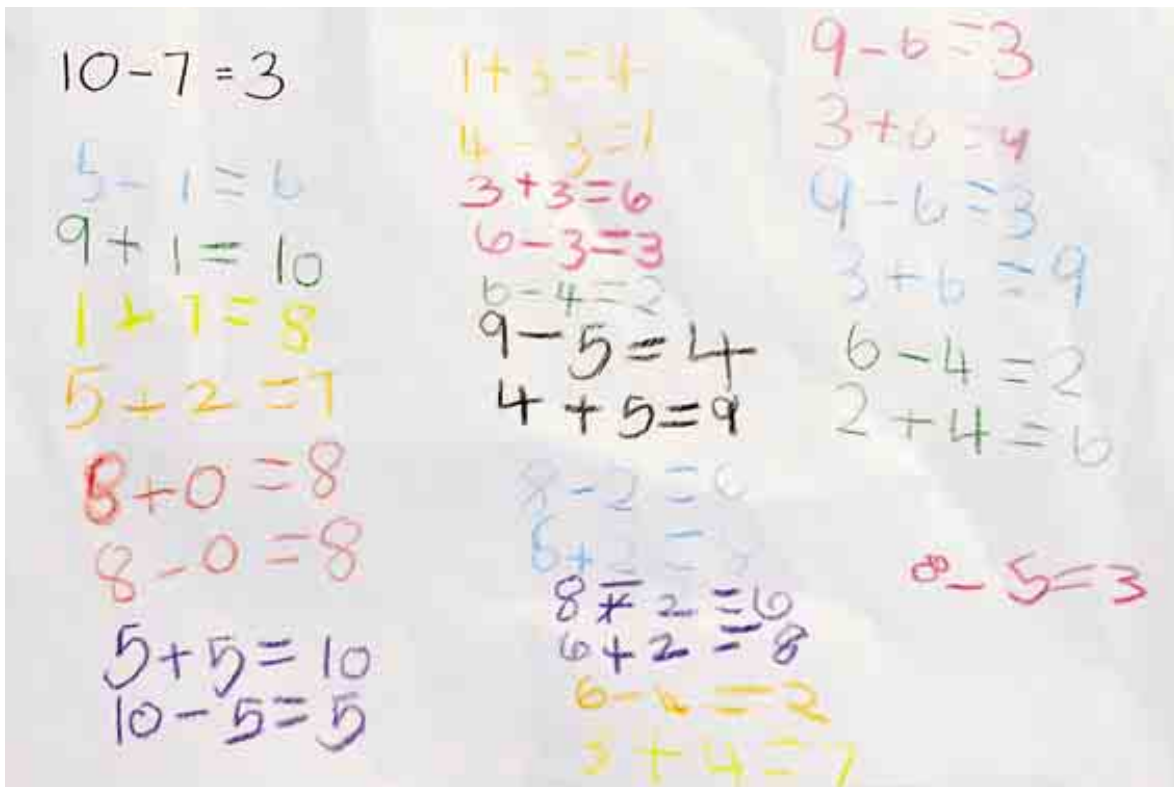 10-7=3
5-1=6
9+1=10
1+7=8
5+2=7
8+0=8
8-0=8
5+5=10
10-5=5
1+3=4
4-3=1
3+3=6
6-3=3
6-4=2
9-5=4
4+5=9
8-2=6
6+2=
8 2=6
6+2=8
6-4=2
3+4=7
9-6=3
3+6=9
9-6=3
3+6=9
6-4=2
2+4=6
8-5=3